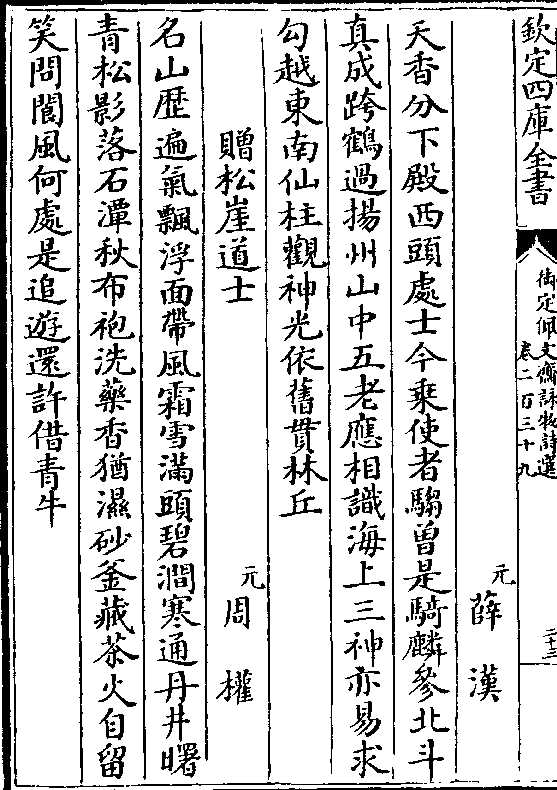 欽定四庫全書
御定佩文齋詠物詩選
卷二百三十九
二十三
元 薛漢
天香分下殿西頭處士今乗使者騶曽是騎麟參北斗
真成跨鶴過揚州山中五老應相識海上三神亦易求
勾越東南仙柱觀神光依舊貫林丘
贈松崖道士
元 周權
名山歴遍氣飄浮面帶風霜雪滿頭碧澗寒通丹井曙
青松影落石潭秋布袍洗藥香猶濕砂釜藏茶火自留
笑問閬風何處是追遊還許借青牛